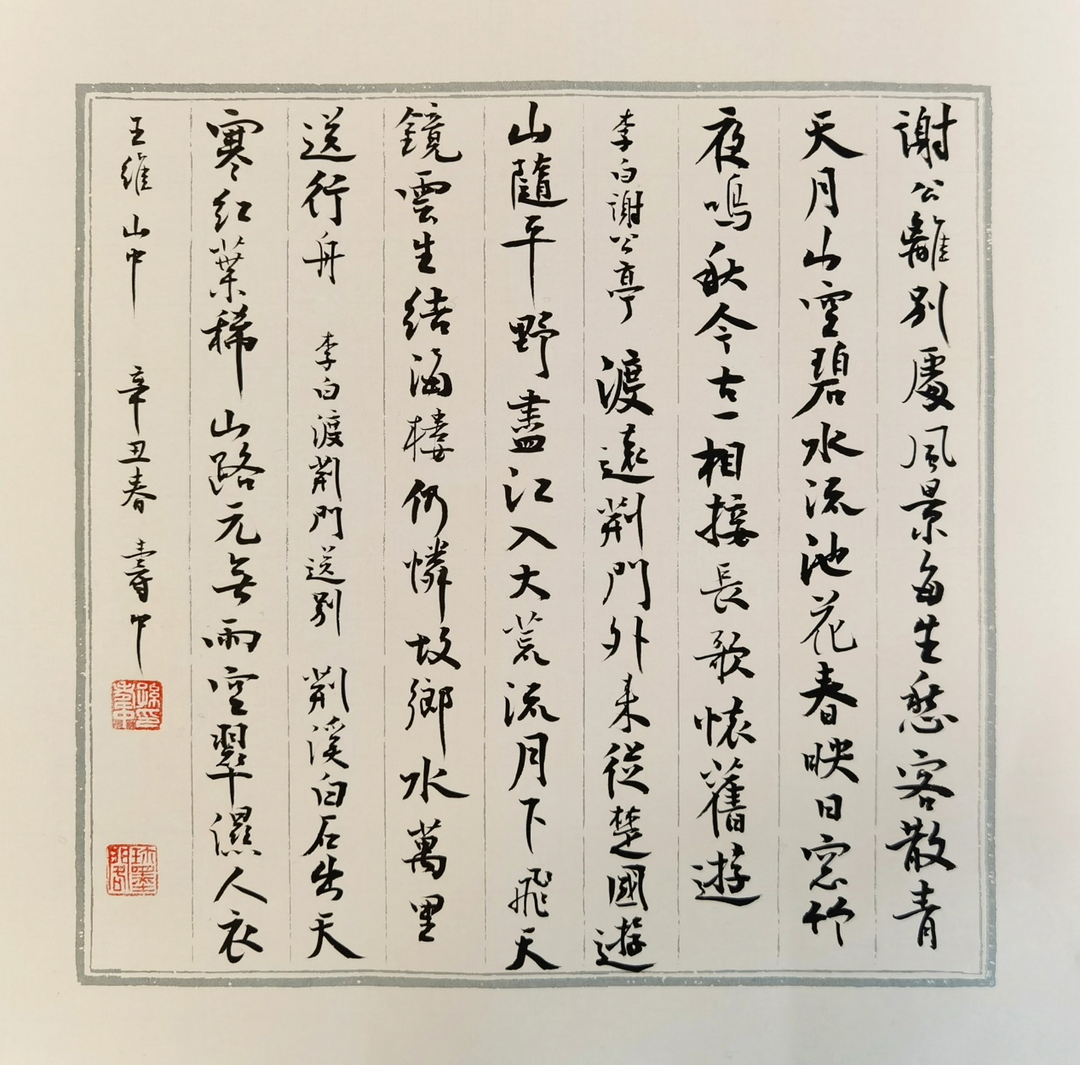 謝公離別處風景每生愁客散青
天月山空碧水流池花春映日窓竹
夜鳴秋今古一相接長歌懷舊遊
李白謝公亭 渡遠荆門外来從楚國遊
山隨平野盡江入大荒流月下飛天
鏡雲生結海樓仍憐故鄉水萬里
送行舟 李白渡荆門送别 荆溪白石出天
寒红葉稀山路元無雨空翠濕人衣
王維山中 辛丑春 壽中